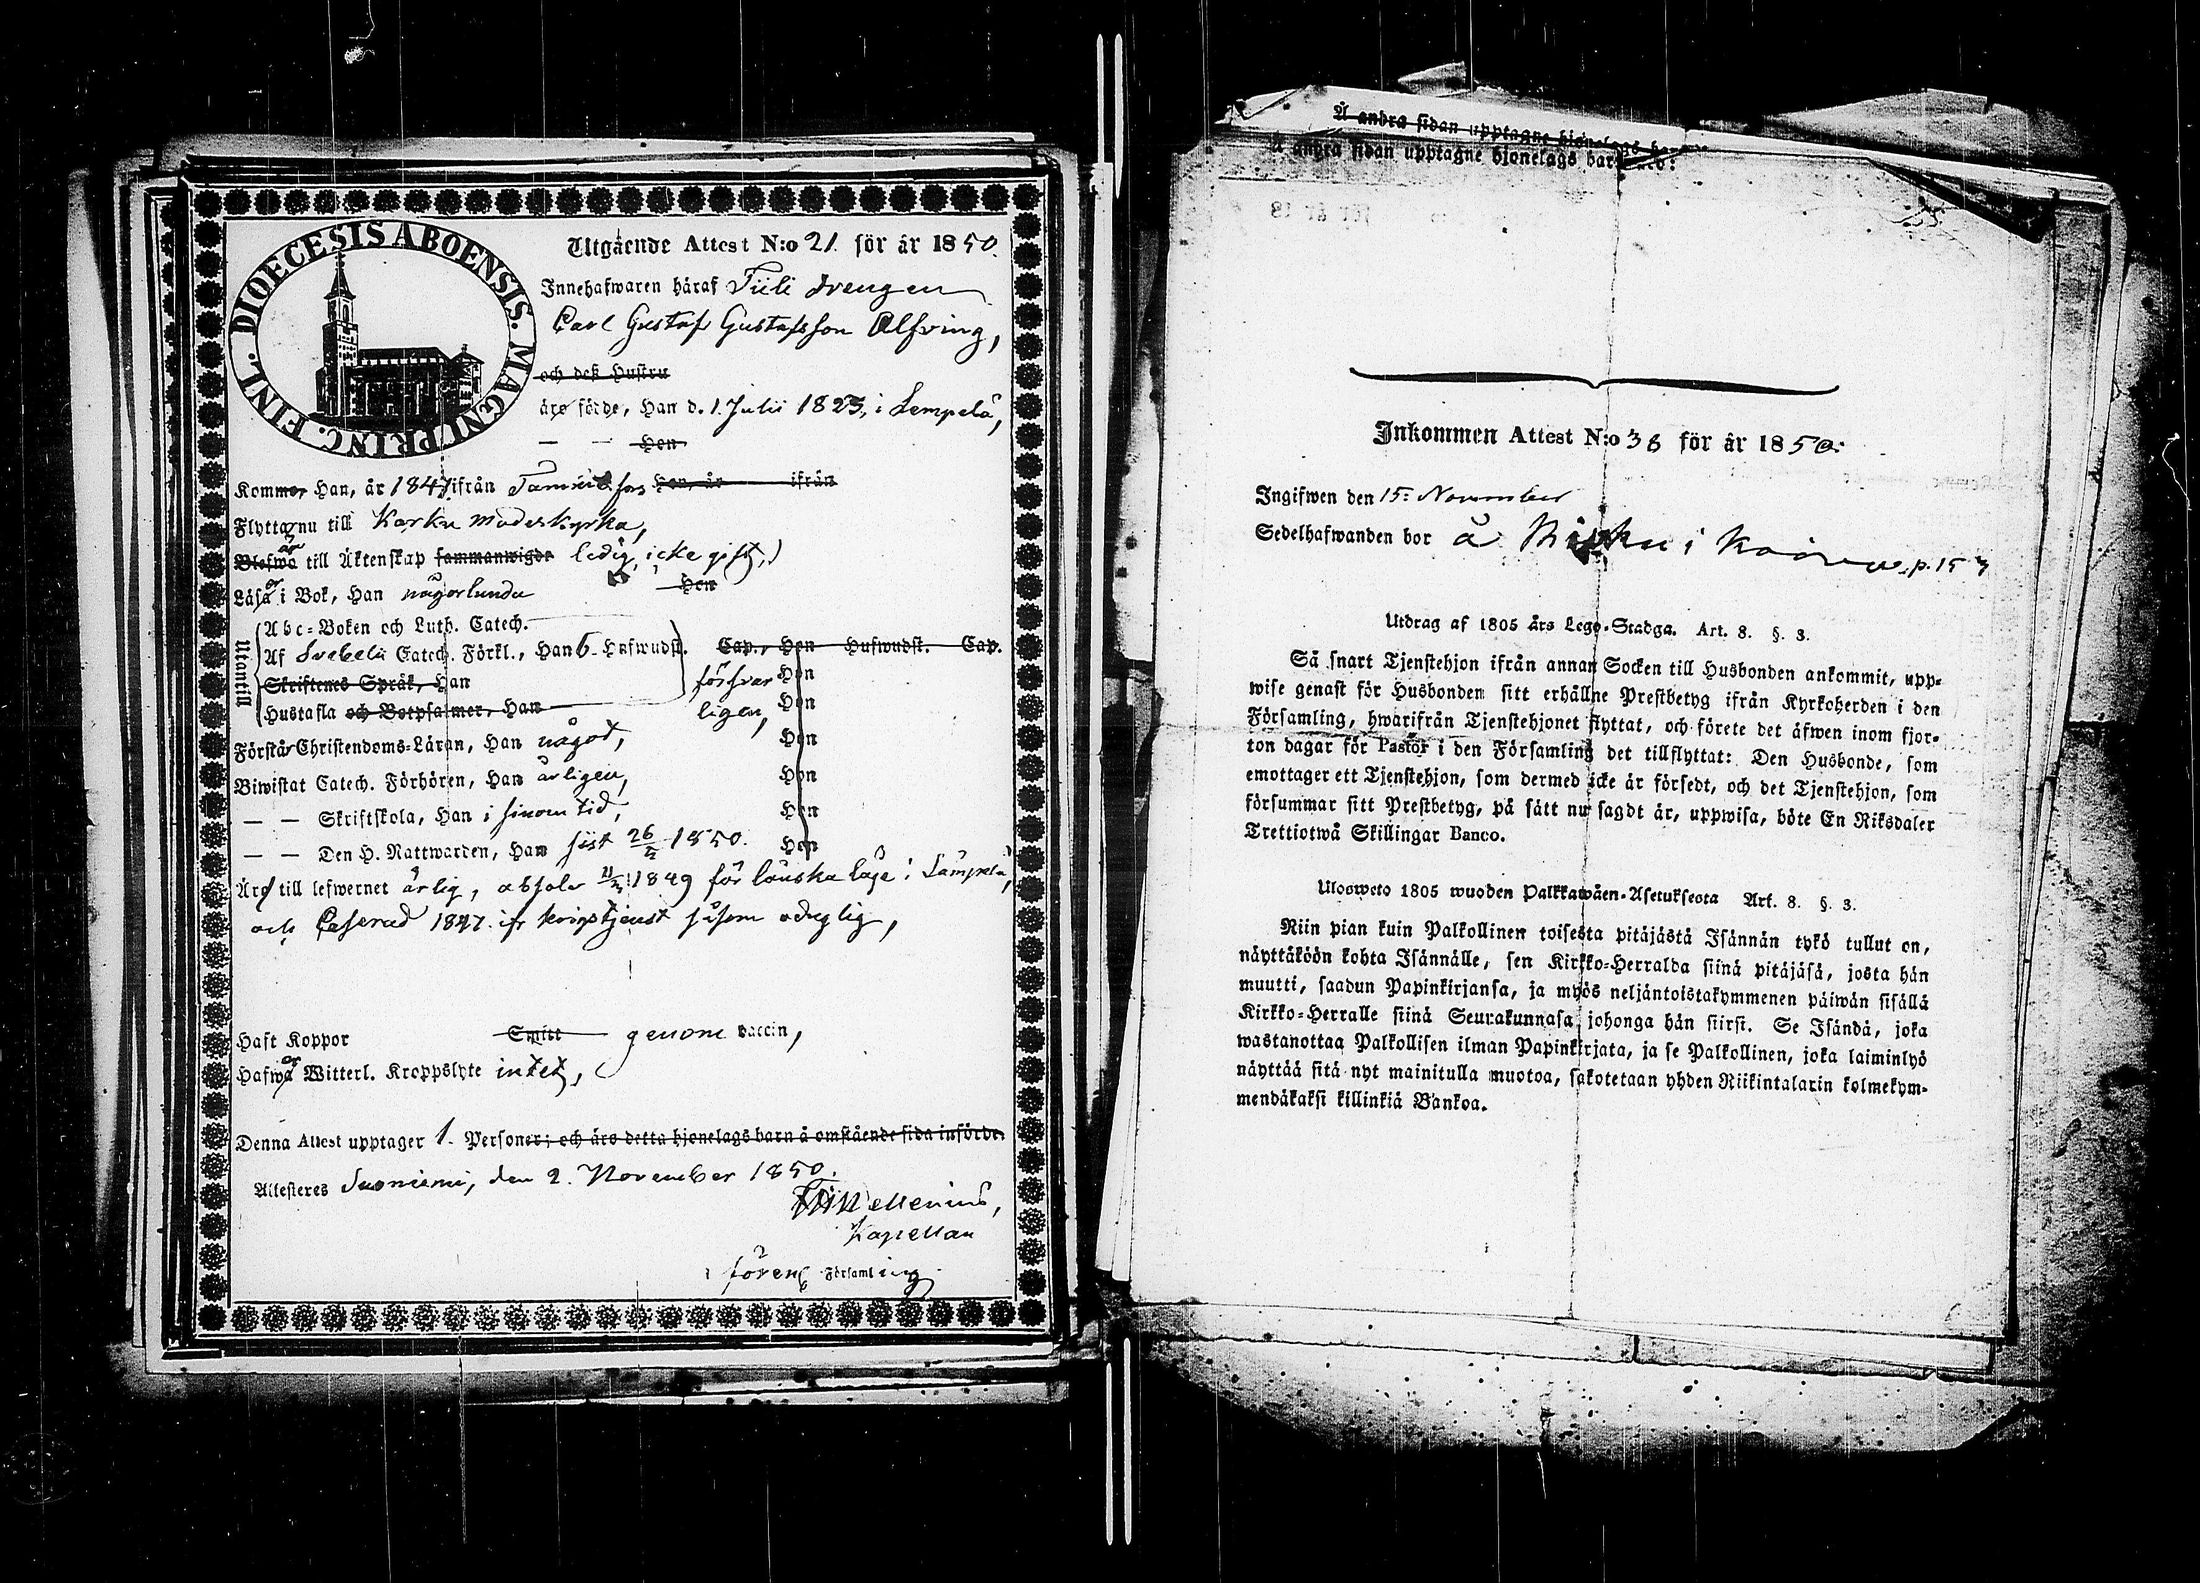 DIOECESIS ABOENSIS. MAGNI PRINC. FINL.
Utgående Attest N:o 21. för år 1850.
Innehafwaren häraf Tiili drengen
Carl Gustaf Gustafsson Alfving,
och deß Hustru
äro födde, Han d. 1. Julii 1823, i Lempelä,
— — Hon
Kommo, Han, år 1847 ifrån Tammerfors Hon, år ifrån
Flytta nu till Karku moderkyrka,
Blefwo är till Äktenskap sammanwigde ledig, icke gift,
Läsa i Bok, Han någorlunda Hon
Utantill
Abc-Boken och Luth. Catech.
Af Svebelii Catech. Förkl., Han 6 Hufwudst. Cap., Hon Hufwudst. Cap.
Skriftenes Språk, Han försvar Hon
Hustafla och Botpsalmer, Han ligen, Hon
Förstår Christendoms-Läran, Han något, Hon
Biwistat Catech. Förhören, Han årligen, Hon
— — Skriftskola, Han i sinom tid, Hon
— — Den H. Nattwarden, Han sist 26/5 1850. Hon
Äro till lefwernet ärlig, absolv 1849 för lönska läge i Lempelä,
och Casserad 1847 ifr krigstjenst såsom oduglig,
Haft Koppor Smitt genom vaccin,
Hafwa Witterl. Kroppslyte intet,
Denna Attest upptager 1. Personer; och äro detta hjonelags barn å omstående sida införde.
Attesteres Suoniemi, den 2. November 1850.
Wellenius,
Kapellan
i föreng Församling
Å andra sidan upptagne hjonelags barn
Å andra sidan upptagne hjonelags barn
Inkommen Attest N:o 38 för år 1850:
Ingifwen den 15: November
Sedelhafwanden bor å i p. 15
Utdrag af 1805 års Lego-Stadga. Art. 8. §. 3.
Så snart Tjenstehjon ifrån annan Socken till Husbonden ankommit, upp-
wise genast för Husbonden sitt erhållne Prestbetyg ifrån Kyrkoherden i den
Församling, hwarifrån Tjenstehjonet flyttat, och förete det äfwen inom fjor-
ton dagar för Pastor i den Församling det tillflyttat: Den Husbonde, som
emottager ett Tjenstehjon, som dermed icke är försedt, och det Tjenstehjon, som
försummar sitt Prestbetyg, på sätt nu sagdt är, uppwisa, böte En Riksdaler
Trettiotwå Skillingar Banco.
Ulosweto 1805 wuoden Palkkawäen-Asetuksesta Art. 8. §. 3.
Niin pian kuin Palkollinen toisesta pitäjästä Isännän tykö tullut on,
näyttäköön kohta Isännälle, sen Kirkko-Herralda siinä pitäjäsä, josta hän
muutti, saadun Papinkirjansa, ja myös neljäntoistakymmenen päiwän sisällä
Kirkko-Herralle siinä Seurakunnasa johonga hän siirsi. Se Isändä, joka
wastanottaa Palkollisen ilman Papinkirjata, ja se Palkollinen, joka laiminlyö
näyttää sitä nyt mainitulla muotoa, sakotetaan yhden Riikintalarin kolmekym-
mendäkaksi killinkiä Bankoa.